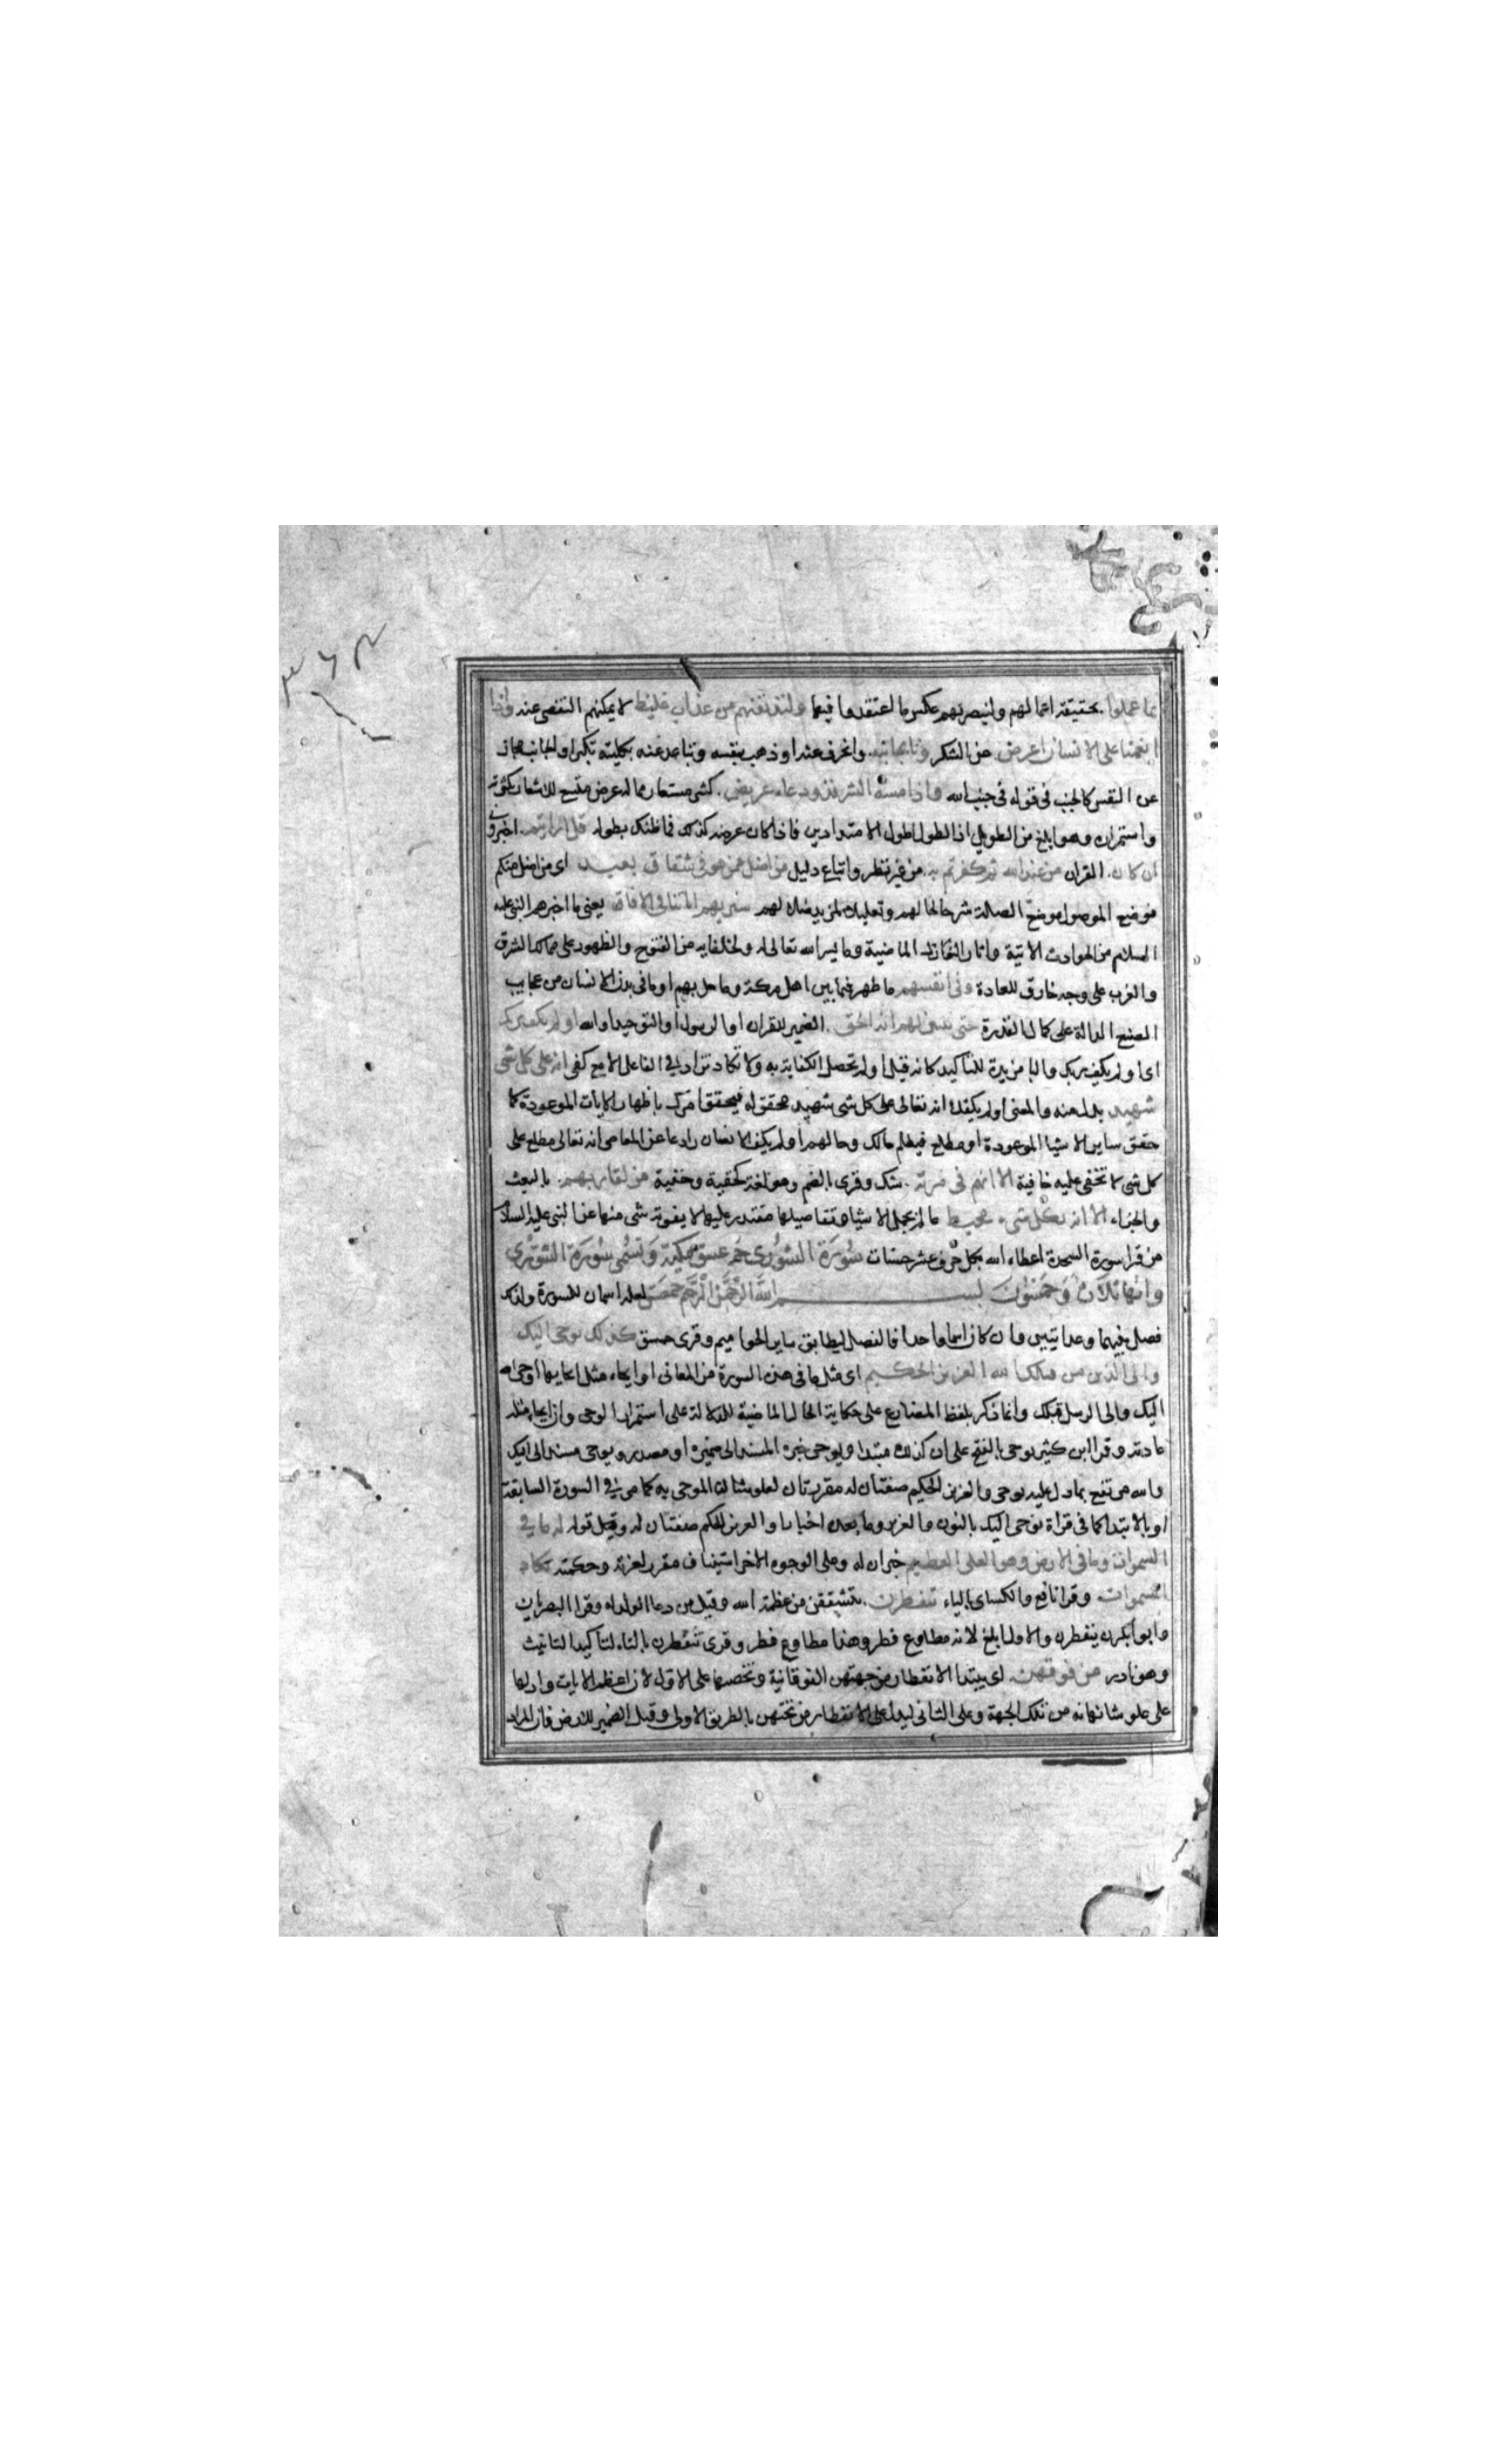 بما عملوا بحقيقة اعمالهم ولنبصرنهم عكس ما اعتقدوا فيها ولنذيقنهم من عذاب غليظ لا يمكنهم التفصى عنه واذا
انعمنا على الانسان اعرض عن الشكر ونا بجانبه وانحرف عنه او ذهب بنفسه وتباعد عنه بكليته تكبرا والجانب مجاز
عن النفس كالجنب فى قوله فى جنب الله واذا مسه الشر فذو دعاء عريض كثير مستعار مما له عرض متسع للاشعار بكثرته
واستمراره وهو ابلغ من الطويل اذ الطول اطول الامتدادين فاذا كان عرضه كذلك فما ظنك بطوله قل ارايتم اخبرونى
ان كان القران من عند الله ثم كفرتم به من غير نظر واتباع دليل من اضل ممن هو فى شقاق بعيد اى من اضل منكم
فوضع الموصول موضع الصلة شرحا لحالهم وتعليلا لمزيد ضلالهم سنريهم اياتنا فى الافاق يعنى ما اخبرهم النبى عليه
السلام من الحوادث الاتية واثار النوازل الماضية وما يسر الله تعالى له ولخلفايه من الفتوح والظهور على ممالك الشرق
والغرب على وجه خارق للعادة وفى انفسهم ما ظهر فيما بين اهل مكة وما حل بهم او ما فى بدن الانسان من عجايب
الصنع الدالة على كمال القدرة حتى يتبين لهم انه الحق الضمير للقران او الرسول او التوحيد او الله اولم يكف بربك
اى اولم يكف ربك والبا مزيدة للتاكيد كانه قيل اولم تحصل الكفاية به ولا تكاد تزاد فى الفاعل الا مع كفى انه على كل شى
شهيد بدل منه والمعنى اولم يكفك انه تعالى على كل شى شهيد محقق له فيحقق امرك باظهار الايات الموعودة كما
حقق ساير الاشيا الموعودة او مطلع فيعلم حالك وحالهم اولم يكف الانسان رادعا عن المعاصى انه تعالى مطلع على
كل شى لا تخفى عليه خافية الا انهم فى مرية شك وقرى بالضم وهو لغة كخفية وخفية من لقا ربهم بالبعث
والجزاء الا انه بكل شىء محيط عالم بجمل الاشيا وتفاصيلها مقتدر عليها لا يفوته شى منها عن النبى عليه السلام
من قرا سورة السجدة اعطاه الله بكل حرف عشر حسنات سورة الشورى حم عسق مكية وتسمى سورة الشورى
وايها ثلاث وخمسون بسم الله الرحمن الرحيم حم عسق لعله اسمان للسورة ولذلك
فصل بينهما وعدا يتين وان كان اسما واحدا فالفصل ليطابق ساير الحواميم وقرى حم سق كذلك يوحى اليك
والى الذين من قبلك الله العزيز الحكيم اى مثل ما فى هذه السورة من المعانى او ايحاء مثل ايحايها اوحى الله
اليك والى الرسل قبلك وانما ذكر بلفظ المضارع على حكاية الحال الماضية للدلالة على استمرار الوحى وان ايحاء مثله
عادته وقرا ابن كثير يوحى بالفتح على ان كذلك مبتدا ويوحى خبره المسند الى ضميره او مصدر ويوحى مسند الى اليك
والله مرتفع بما دل عليه يوحى والعزيز الحكيم صفتان له مقررتان لعلو شان الموحى به كما مر فى السورة السابقة
او بالابتدا كما فى قراة نوحى اليك بالنون والعزيز وما بعده اخبار او العزيز الحكيم صفتان له وقيل قوله له ما فى
السموات وما فى الارض وهو العلى العظيم خبران له وعلى الوجوه الاخر استيناف مقرر لعزته وحكمته تكاد
السموات وقرا نافع والكساى بالياء تتفطرن يتشققن من عظمة الله وقيل من دعا الولد له وقرا البصريان
وابو بكر ينفطرن والاول ابلغ لانه مطاوع فطر وهذا مطاوع فطر وقرى تتفطرن بالتاء لتاكيد التانيث
وهو نادر من فوقهن اى يبتدا الانفطار من جهتهن الفوقانية وتخصيصها على الاول لان اعظم الايات وادلها
على علو شانه من تلك الجهة وعلى الثانى ليدل على الانفطار من تحتهن بالطريق الاولى وقيل الضمير للارض فان المراد